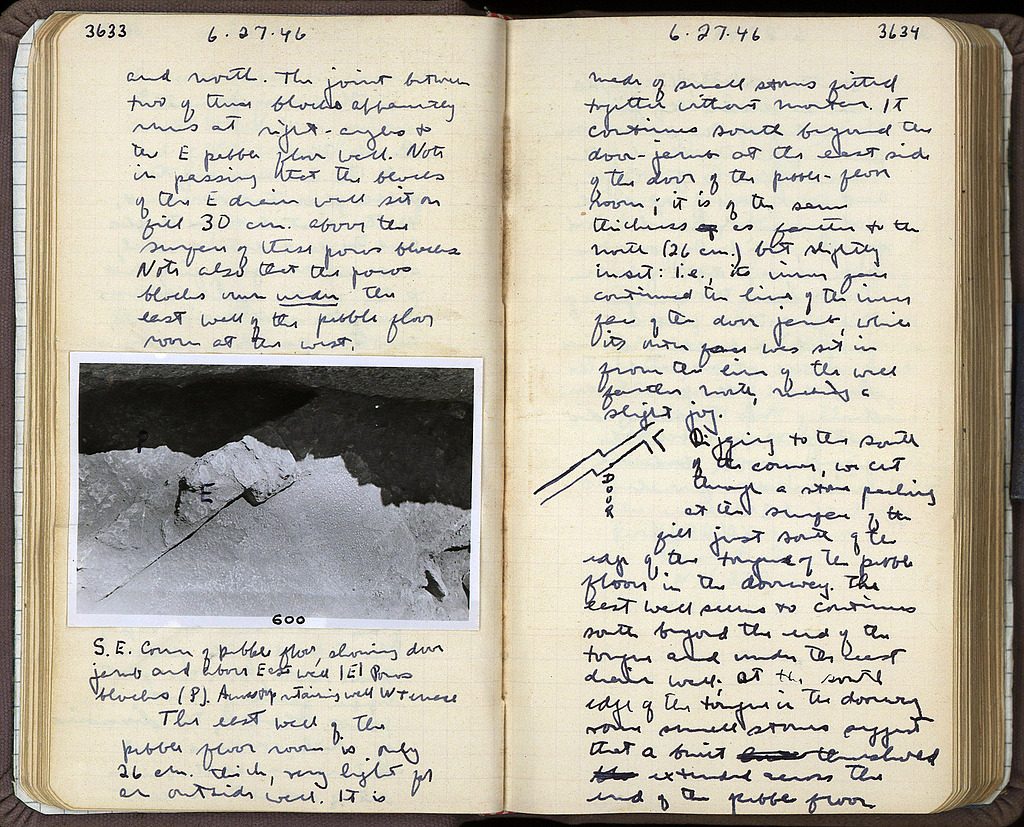 3633
6·27·46
and north. The joint between
two of these blocks apparently
runs at right-angles to
the E pebble floor wall. Note
in passing that the blocks
of the E drain wall sit on
fill 30 cm. above the
surface of these poros blocks
Note also that the poros
blocks run under the
east wall of the pebble floor
room at the west.
P
E
600
S.E. Corner of pebble floor, showing door
jamb and above East wall (E) Poros
blocks (P). retaining wall W terrace
The east wall of the
pebble floor room is only
26 cm. thick, very light for
an outside wall. It is
6·27·46
3634
made of small stones fitted
together without mortar. It
continues south beyond the
door-jamb at the east side
of the door of the pebble-floor
room; it is of the same
thickness as farther to the
north (26 cm.) but slightly
inset: i.e., its inner face
continued the line of the inner
face of the door jamb, while
its outer face was set in
from the line of the wall
farther north, making a
slight jog.
DOOR
Digging to the south
of the corner, we cut
through a stone packing
at the surface of the
fill just south of the
edge of the tongue of the pebble
floors in the doorway. The
east wall seems to continue
south beyond the end of the
tongue and under the east
drain wall; at the south
edge of the tongue in the doorway
some small stones suggest
that a built threshold
extended across the
end of the pebble floor